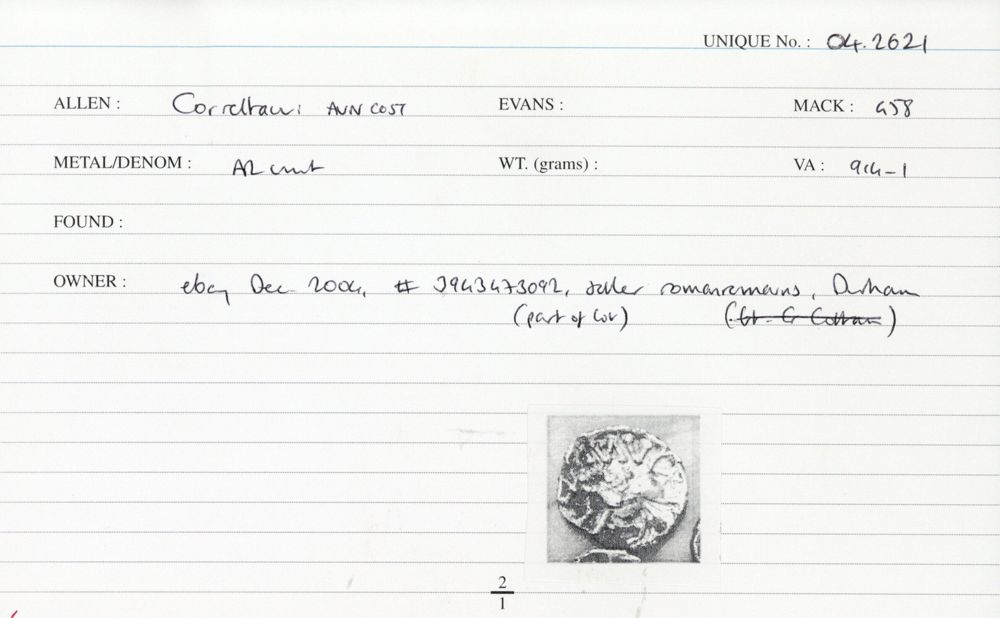 UNIQUE No. : 04.2621
ALLEN : Corieltauvi AUN COST EVANS : MACK : 458
METAL/DENOM : AR unit WT. (grams) : VA : 914-1
FOUND :
OWNER : ebay Dec 2004, # 3943473092, seller romanremains, Durham
(part of lot)
2
1